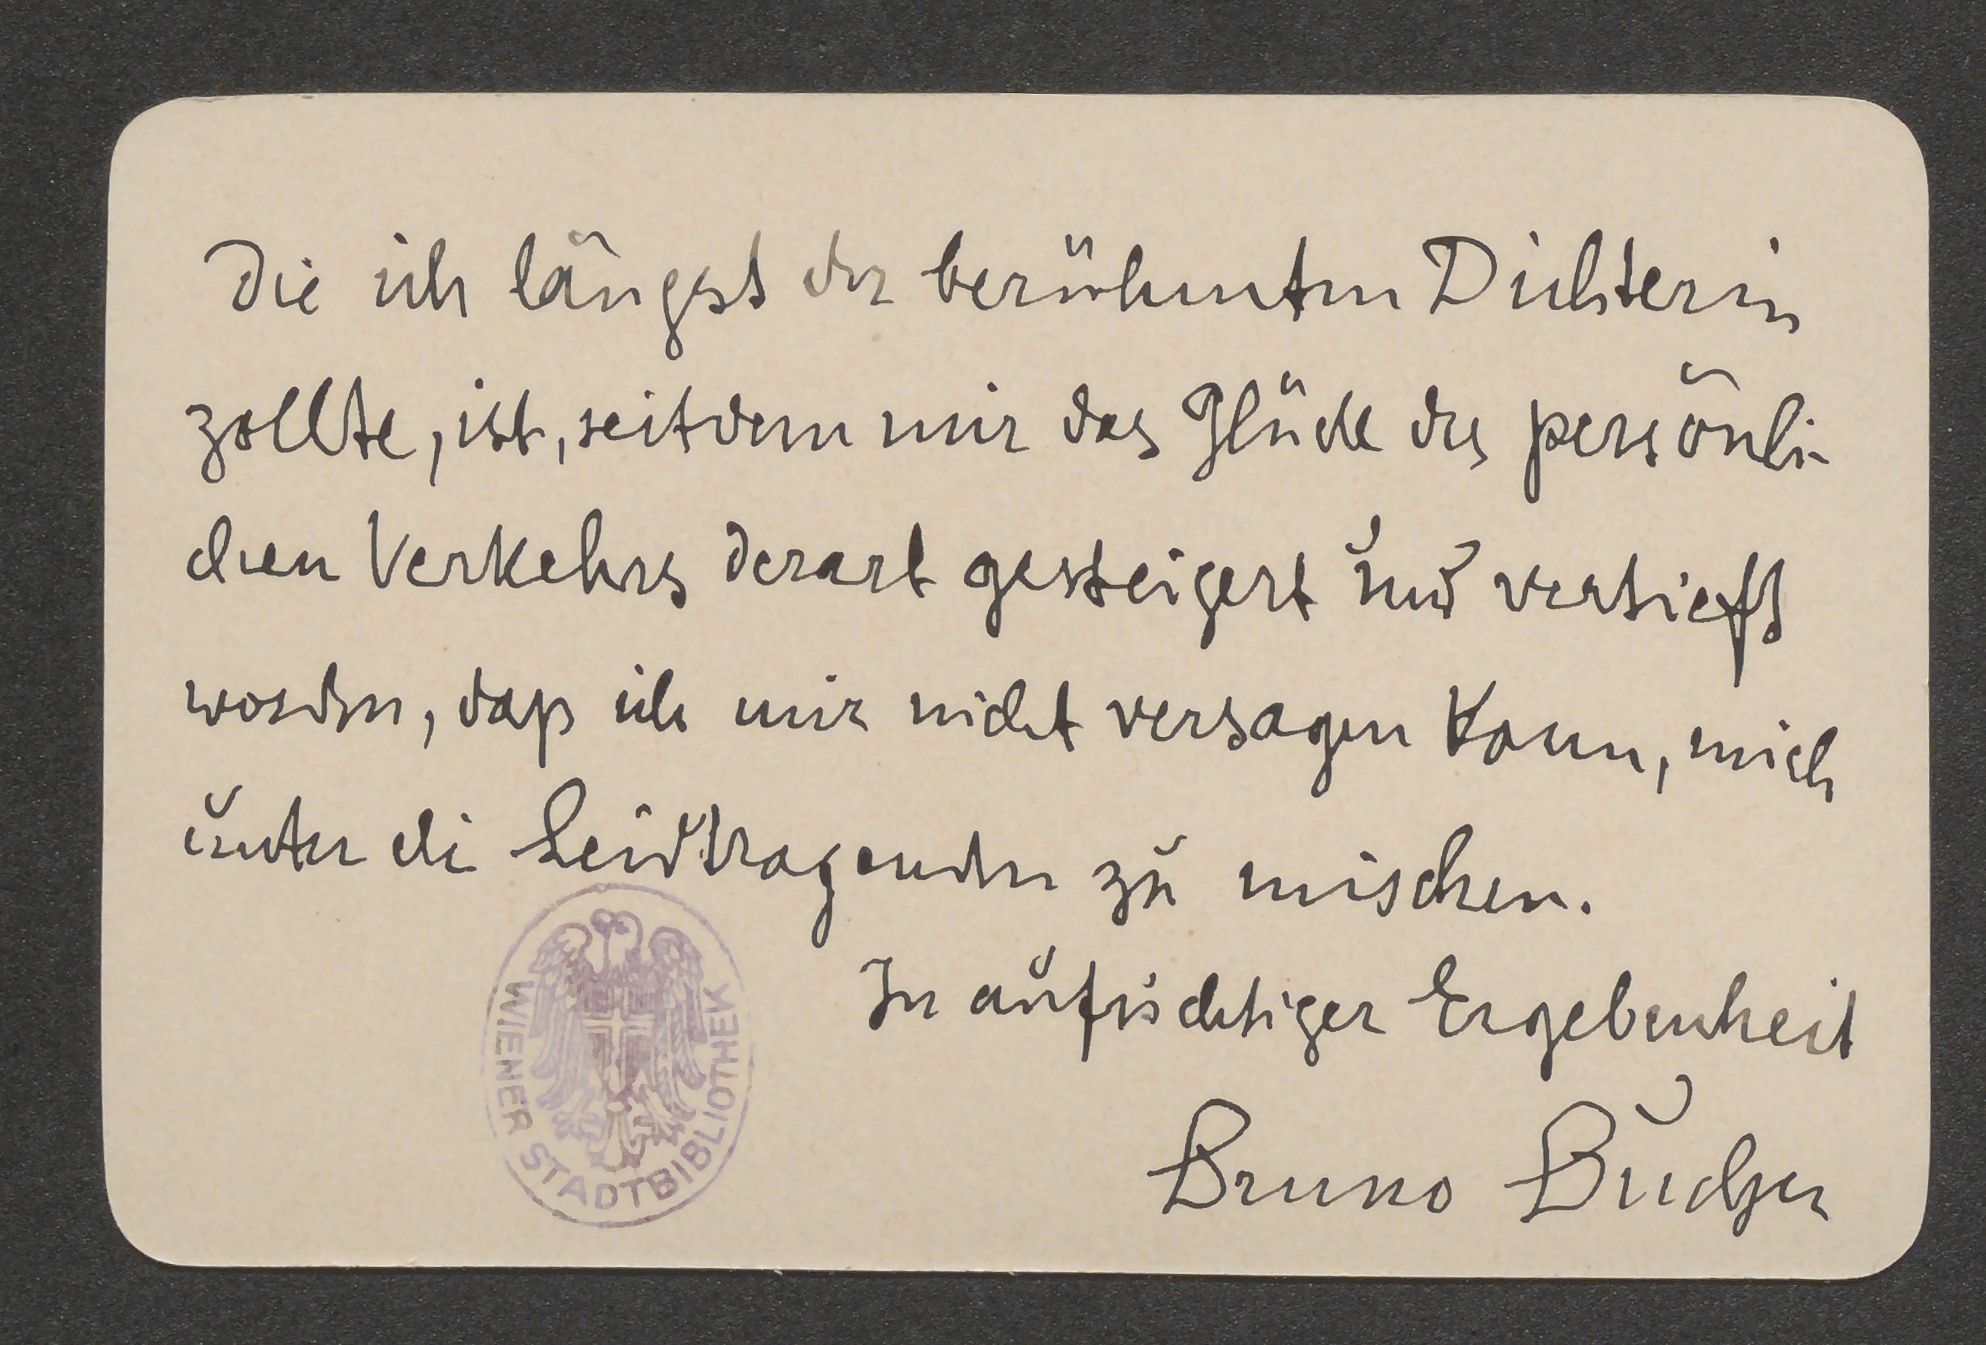 die ich längst der berühmten Dichterin
zollte, ist, seitdem mir das Glück des persönli-
chen Verkehrs derart gesteigert und vertieft
worden, daß ich mir nicht versagen kann, mich
unter die Leidtragenden zu mischen.
In aufrichtiger Ergebenheit
Bruno Bucher
WIENER STADTBIBLIOTHEK